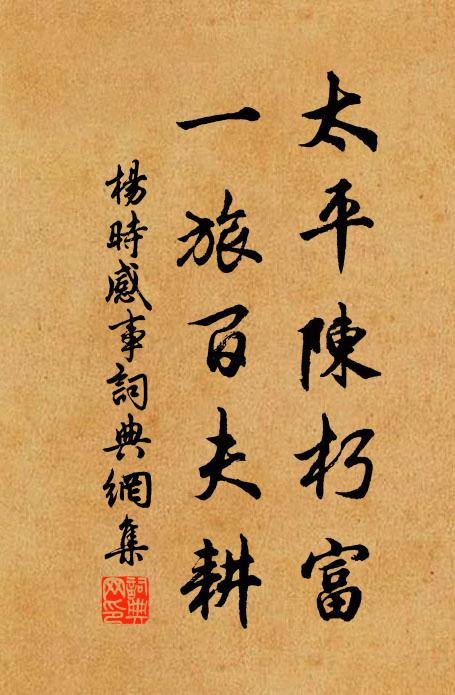 太平陳朽富
一旅百夫耕
楊時感事詞典網集
詞典網印